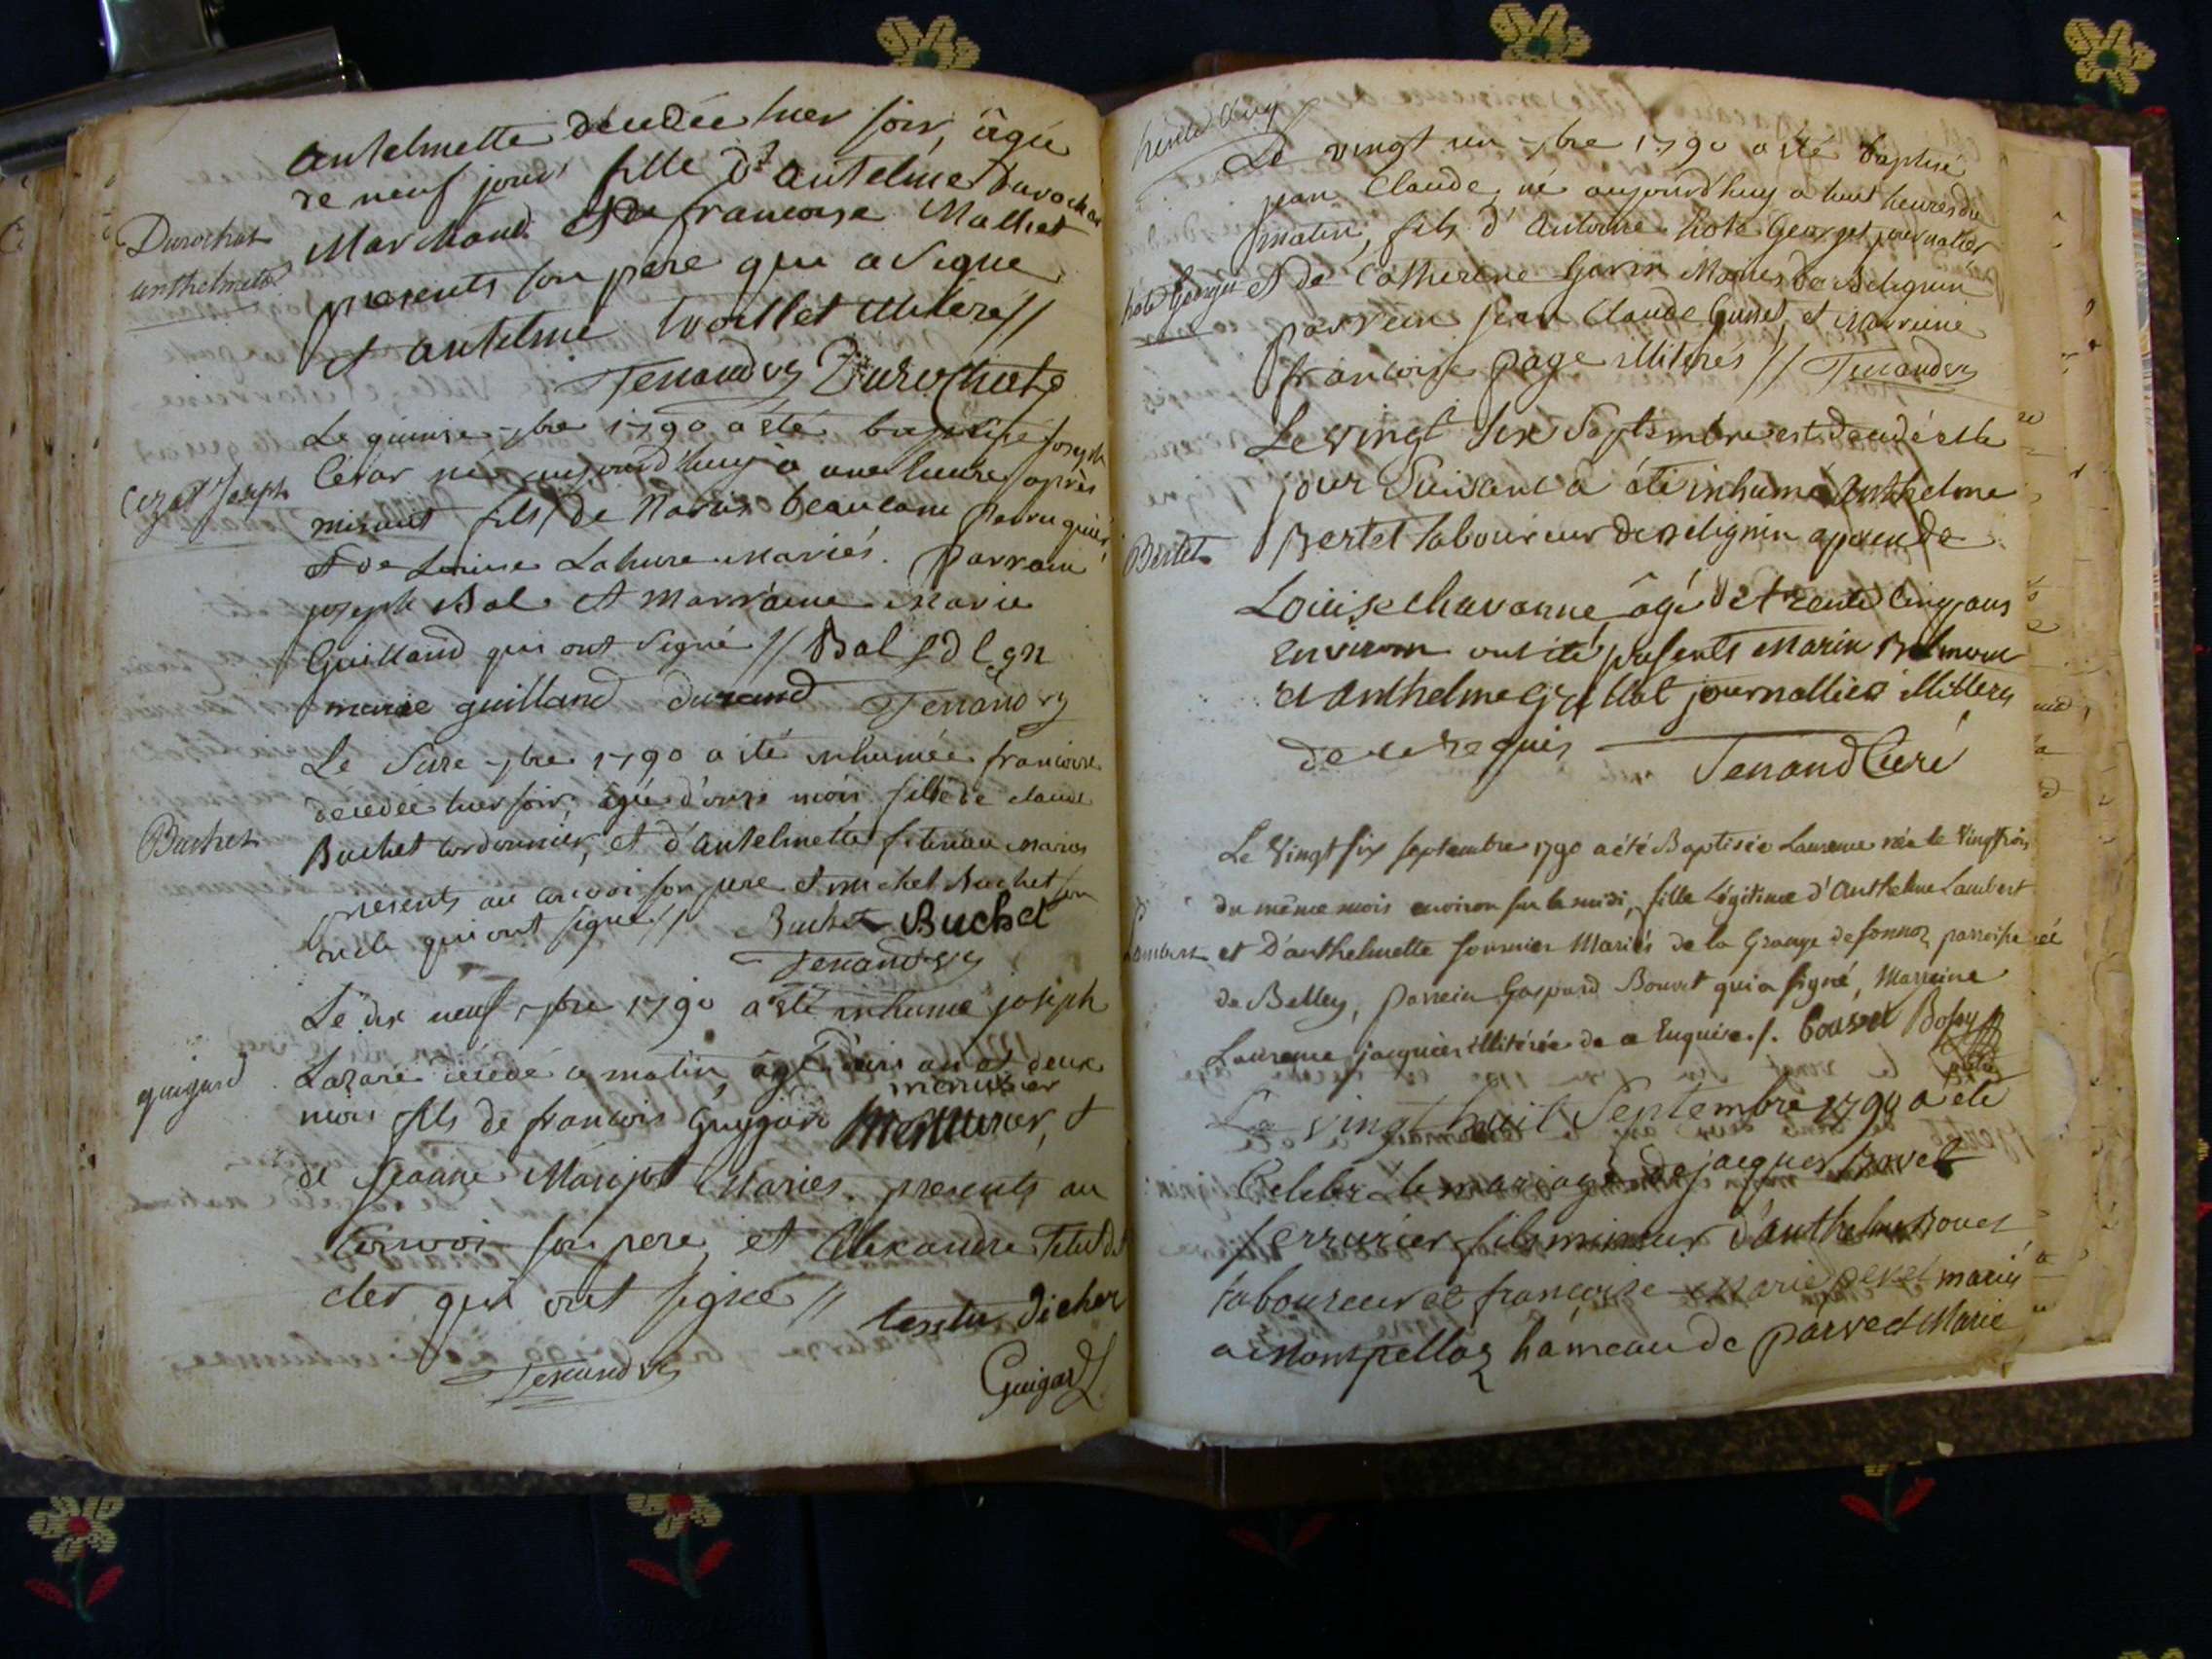 Antelmette décédée hier soir, âgée
de neuf jours fille d'antelme Durochat
Durochat
anthelmette
Marchand et de francoise Malliet
presents son pere qui a signé
et antelme illitere //
Tenand Durochat
Le quinse 7bre 1790 a été baptisé joseph
Cezar joseph
César né aujourd'huy à une heure après
minuit fils de beaulane Perruquier,
et de Louise Lahure Mariés. Parrain
joseph Bal et Marraine Marie
Guilland qui ont signé // Bal
marie guilland durand Tenand
Le Seise 7bre 1790 a été inhumée francoise
décédée hier soir, âgée d'onse mois fille de claude
Buchet
Buchet Cordonnier, et d'antelmette mariés
presents au convoi son pere et michel Buchet son
oncle qui ont signé // Buchet Buchet
Tenand
Le dix neuf 7bre 1790 a été inhumé joseph
guigard
Lazare décédé ce matin, âgé d'un an et deux
menusier
mois fils de francois Guygard menusier, et
de Jeanne Maniot Mariés. presents au
Convoi son pere, et Alexandre Tetu
cher qui ont signé //
testu dicher
Tenand
Guigard
Le vingt un 7bre 1790 a été baptisé
jean Claude, né aujourd'huy a huit heures du
matin, fils d'Antoine hote Georget journalier
hote Georget
et de Catherine Gavin Mariés de Belignin
parrein jean Claude Gusset, et Marreine
francoise page illiteres // Tenand
Le Vingt Six Septembre est décédé et le
jour Suivant a été inhumé Anthelme
Bertet
Bertet laboureur de Belignin epoux de
Louise Chavanne âgé de trente Cinq ans
Environ ont été presents Marin Belmont
et Anthelme journallier illitteres
de ce requis
Tenand Curé
Le Vingt six septembre 1790 a été Baptisée Laurence née le Vingt trois
du même mois environ sur le midi, fille Légitime d'Anthelme Lambert
Lambert
et D'anthelmette fournier Mariés de la Grange de sonnoz parroisse
de Belley, Parrein Gaspard Bouvet qui a signé, Marreine
Laurence jacquier illitérée de ce Enquise ./. bouvet
Le vingt huit Septembre 1790 a été
Celebré le mariage de jacques Bovet
serrurier fils mineur d'anthelme Bovet
laboureur et françoise Marie mariés
a Montpellaz hameau de parve et Marie